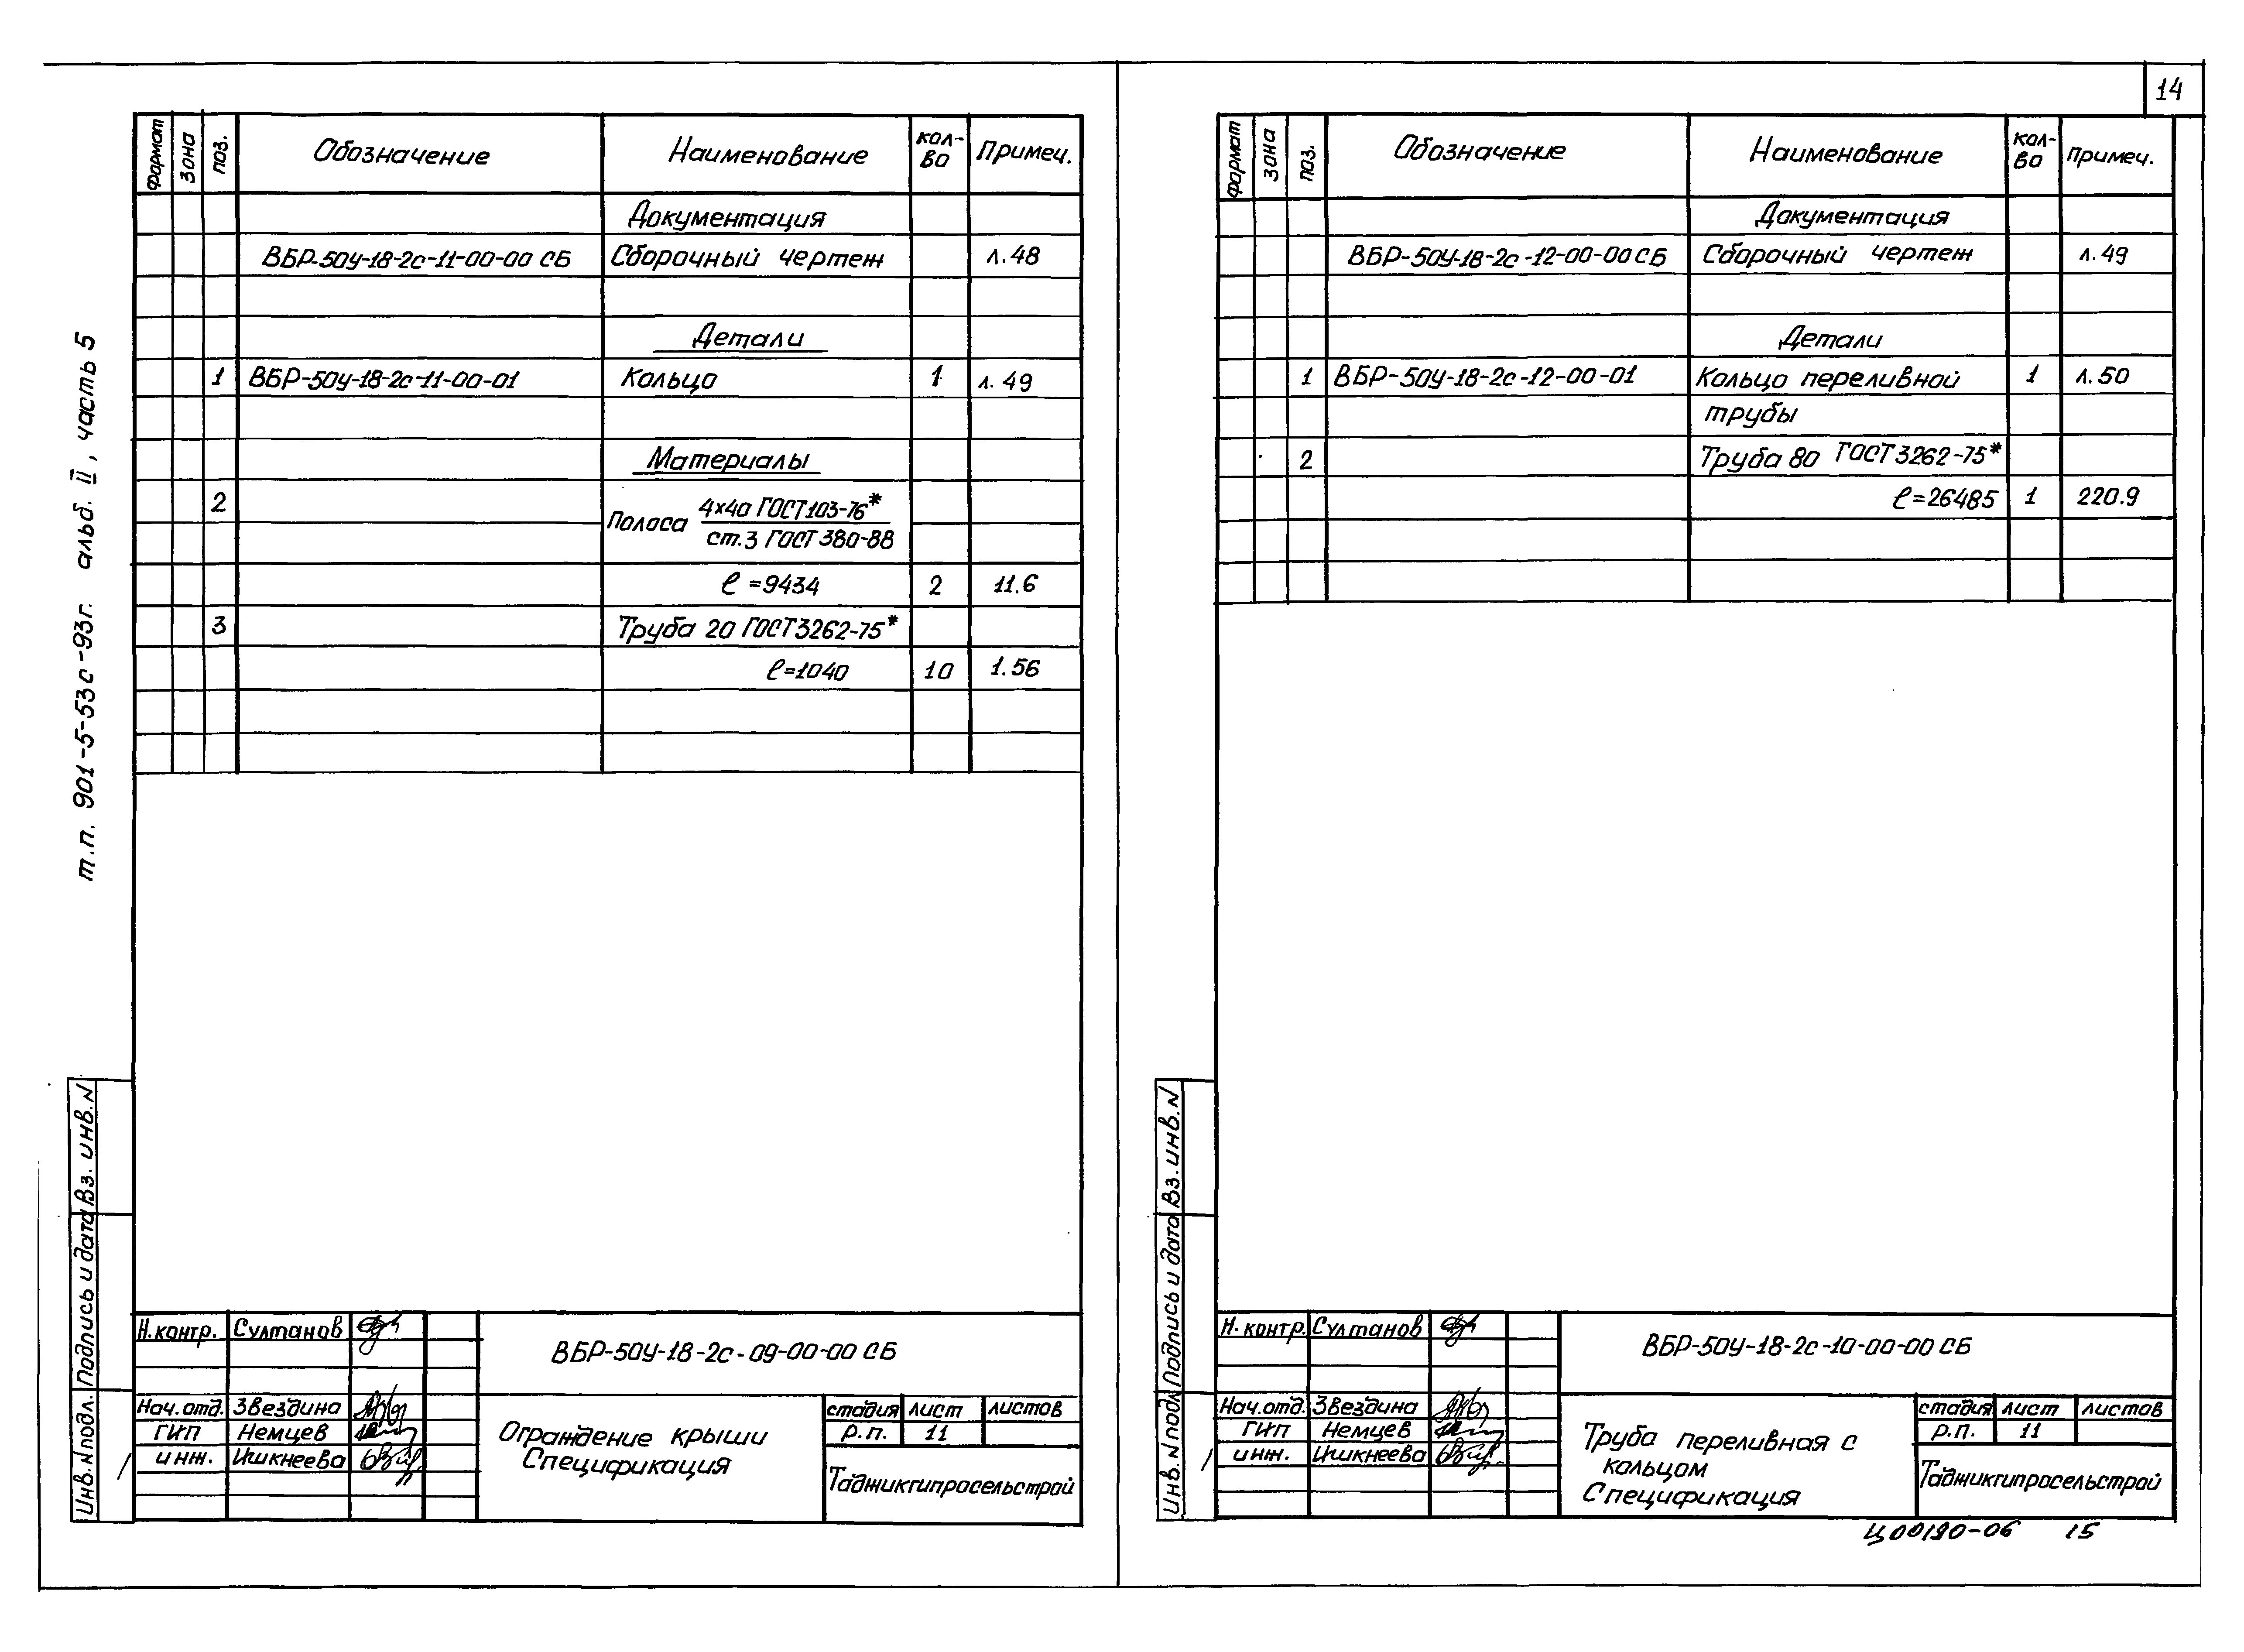 14
т.п. 901-5-53с-93г. альб. II, часть 5
Формат Зона поз. Обозначение Наименование кол-во Примеч.
Документация
ВБР-50У-18-2с-11-00-00 СБ Сборочный чертеж л.48
Детали
1 ВБР-50У-18-2с-11-00-01 Кольцо 1 л.49
Материалы
2 Полоса 4х40 ГОСТ103-76*
ст.3 ГОСТ 380-88
ℓ=9434 2 11.6
3 Труба 20 ГОСТ3262-75*
ℓ=1040 10 1.56
Инв.N подл. Подпись и дата Вз. инв.N
Н.контр. Султанов
ВБР-50У-18-2с-09-00-00 СБ
Нач.отд. Звездина
ГИП Немцев
инж. Ишкнеева
Ограждение крыши
Спецификация
стадия лист листов
Р.п. 11
Таджикгипросельстрой
Формат Зона поз. Обозначение Наименование кол-во Примеч.
Документация
ВБР-50У-18-2с-12-00-00 СБ Сборочный чертеж л.49
Детали
1 ВБР-50У-18-2с-12-00-01 Кольцо переливной 1 л.50
трубы
2 Труба 80 ГОСТ3262-75*
ℓ=26485 1 220.9
Инв.N подл. Подпись и дата Вз. инв.N
Н.контр. Султанов
ВБР-50У-18-2с-10-00-00 СБ
Нач.отд. Звездина
ГИП Немцев
инж. Ишкнеева
Труба переливная с
кольцом
Спецификация
стадия лист листов
Р.п. 11
Таджикгипросельстрой
Ц00190-06 15